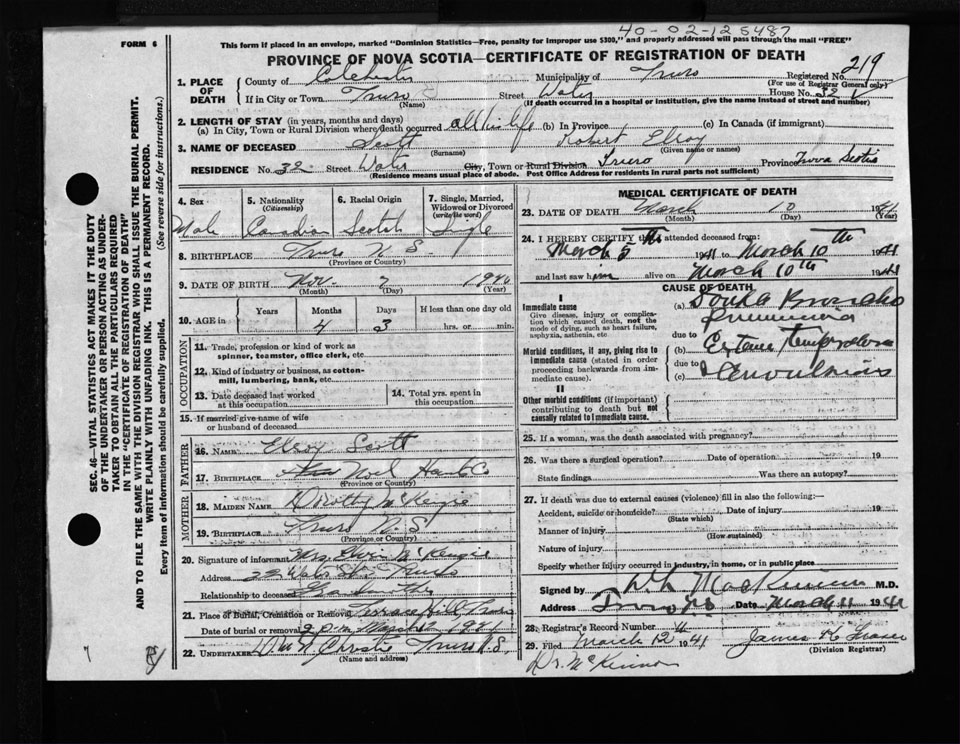 40-02-125487
FORM 6
This form if placed in an envelope, marked "Dominion Statistics—Free, penalty for improper use $300," and properly addressed will pass through the mail "FREE"
PROVINCE OF NOVA SCOTIA—CERTIFICATE OF REGISTRATION OF DEATH
1. PLACE OF DEATH County of Colchester Municipality of Truro Registered No. 219
(For use of Registrar General only)
If in City or Town Truro Street Water House No. 32
(Name) (If death occurred in a hospital or institution, give the name instead of street and number)
2. LENGTH OF STAY (in years, months and days)
(a) In City, Town or Rural Division where death occurred all his life (b) In Province (c) In Canada (if immigrant)
3. NAME OF DECEASED Scott Robert Elroy
(Surname) (Given name or names)
RESIDENCE No. 32 Street Water City, Town or Rural Division Truro Province Nova Scotia
(Residence means usual place of abode. Post Office Address for residents in rural parts not sufficient)
4. Sex 5. Nationality (Citizenship) 6. Racial Origin 7. Single, Married, Widowed or Divorced (write the word)
Male Canadian Scotch Single
8. BIRTHPLACE Truro N.S.
(Province or Country)
9. DATE OF BIRTH Nov. 7 1940
(Month) (Day) (Year)
10. AGE in Years Months Days If less than one day old
4 3 hrs. or min.
OCCUPATION
11. Trade, profession or kind of work as spinner, teamster, office clerk, etc
12. Kind of industry or business, as cotton-mill, lumbering, bank, etc.
13. Date deceased last worked at this occupation
14. Total yrs. spent in this occupation
15. If married give name of wife or husband of deceased
FATHER
16. NAME Elroy Scott
17. BIRTHPLACE Noel Hants Co
(Province or Country)
MOTHER
18. MAIDEN NAME Dorothy McKenzie
19. BIRTHPLACE Truro N.S
(Province or Country)
20. Signature of informant Mrs McKenzie
Address 32 Water St Truro
Relationship to deceased Grandmother
21. Place of Burial, Cremation or Removal Terrace Hill Truro
Date of burial or removal 2 pm March 12 1941
22. UNDERTAKER Christie Truro N.S.
(Name and address)
MEDICAL CERTIFICATE OF DEATH
23. DATE OF DEATH March 10 1941
(Month) (Day) (Year)
24. I HEREBY CERTIFY that I attended deceased from:
March 5th 1941 to March 10th 1941
and last saw him alive on March 10th 1941
CAUSE OF DEATH
I
Immediate cause
Give disease, injury or complication which caused death, not the mode of dying, such as heart failure, asphyxia, asthenia, etc
(a) Double Broncho Pneumonia
due to
Morbid conditions, if any, giving rise to immediate cause (stated in order proceeding backwards from immediate cause)
(b) Extreme temperature
due to
(c) Convulsions
II
Other morbid conditions (if important) contributing to death but not causally related to immediate cause.
25. If a woman, was the death associated with pregnancy?
26. Was there a surgical operation? Date of operation 19
State findings Was there an autopsy?
27. If death was due to external causes (violence) fill in also the following:—
Accident, suicide or homicide? Date of injury 19
(State which)
Manner of injury
(How sustained)
Nature of injury
Specify whether injury occurred in industry, in home, or in public place
Signed by MacKinnon M.D.
Address Truro NS Date March 11 1941
28. Registrar's Record Number
29. Filed March 12 1941 James Fraser
(Division Registrar)
Dr. McKinnon
SEC. 46—VITAL STATISTICS ACT MAKES IT THE DUTY OF THE UNDERTAKER OR PERSON ACTING AS UNDERTAKER TO OBTAIN ALL THE PARTICULARS REQUIRED IN THE "CERTIFICATE OF REGISTRATION OF DEATH" AND TO FILE THE SAME WITH THE DIVISION REGISTRAR WHO SHALL ISSUE THE BURIAL PERMIT.
WRITE PLAINLY WITH UNFADING INK. THIS IS A PERMANENT RECORD.
Every item of information should be carefully supplied. (See reverse side for instructions.)